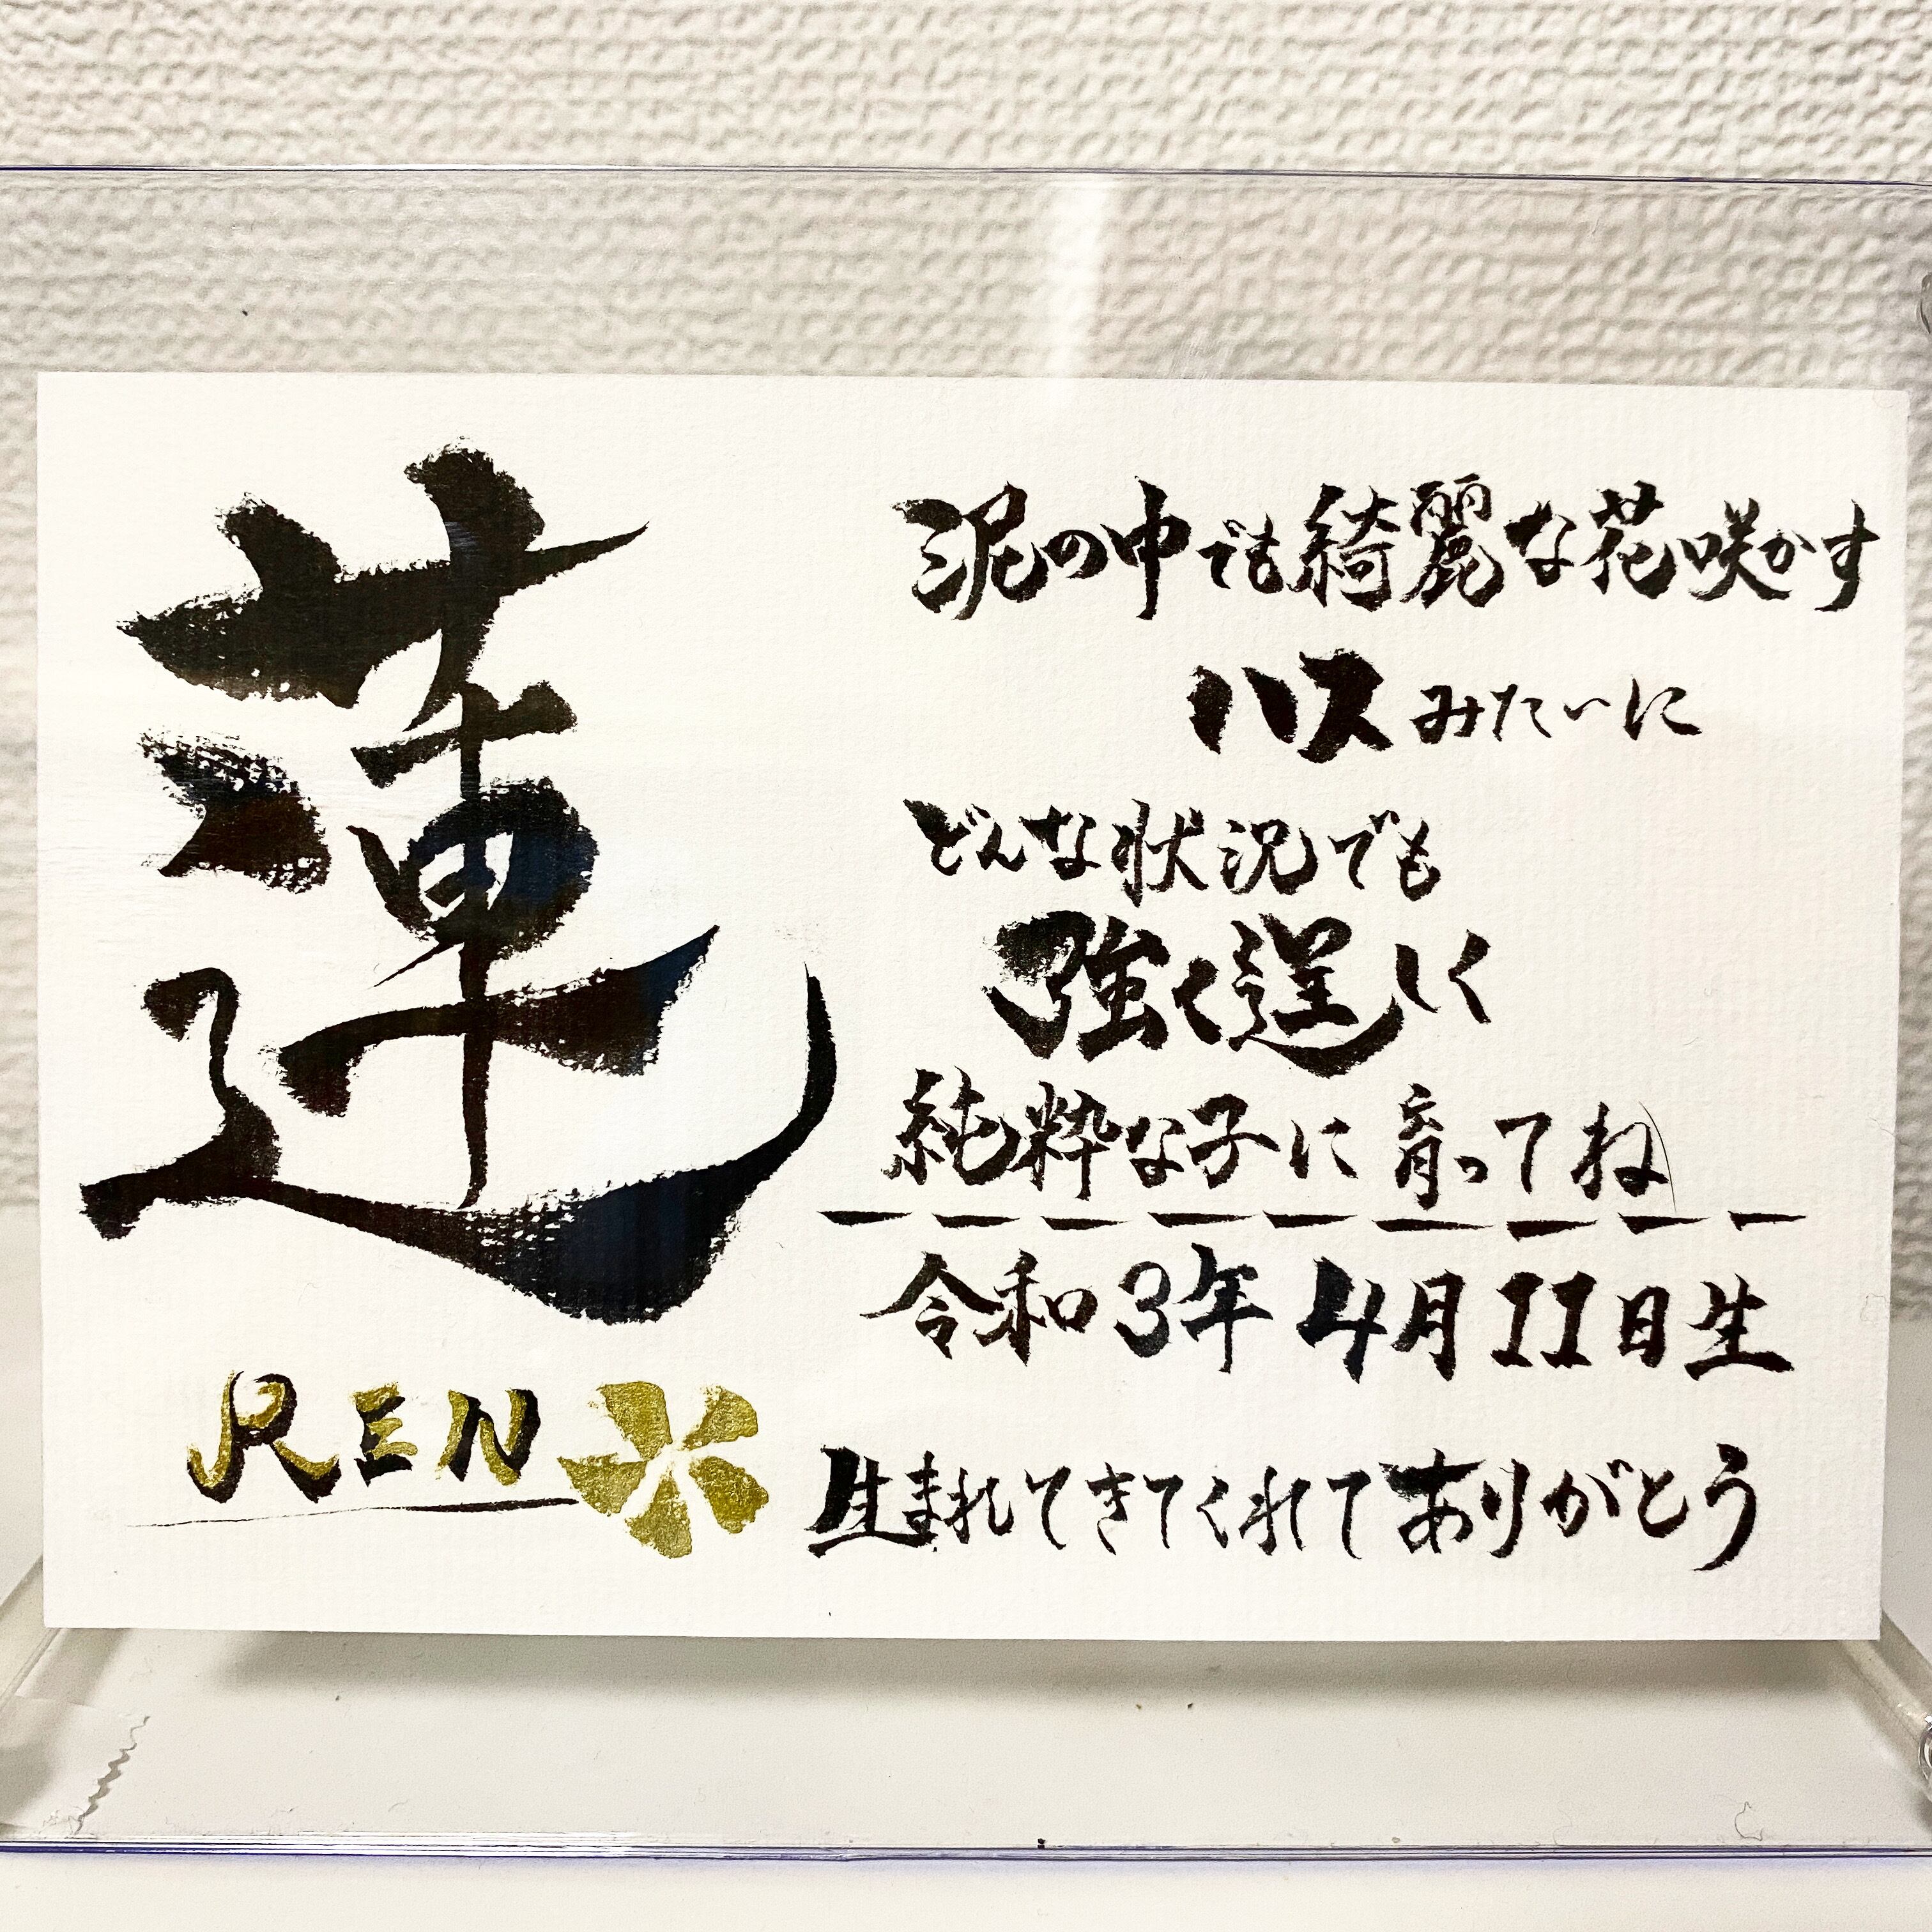 蓮
REN
泥の中でも綺麗な花咲かす
ハスみたいに
どんな状況でも
強く逞しく
純粋な子に育ってね
令和3年4月11日生
生まれてきてくれてありがとう